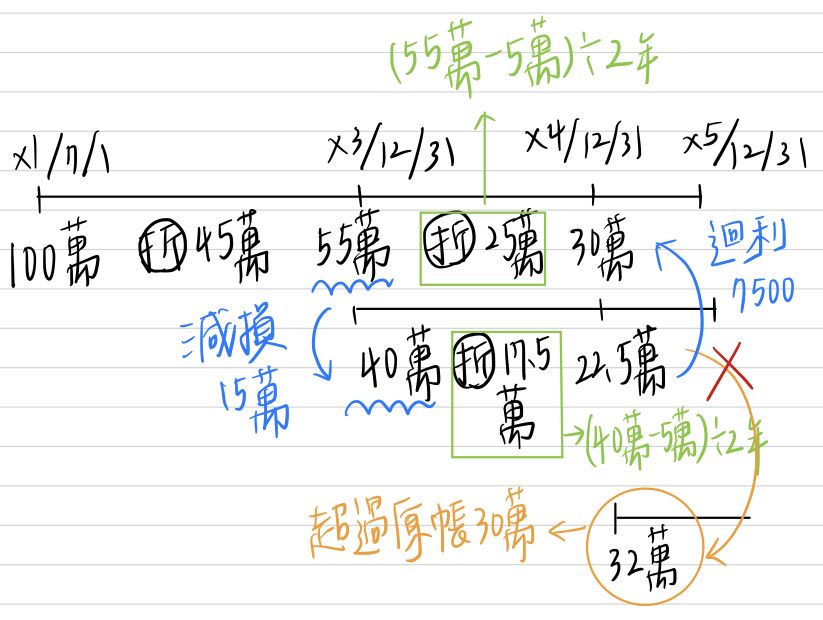 (55萬-5萬)÷2年
x1/7/1
x3/12/31
x4/12/31
x5/12/31
100萬
折 45萬
55萬
折 25萬
30萬
迴利
7500
減損
15萬
40萬
折 17.5
萬
22.5萬
(40萬-5萬)÷2年
超過原帳30萬
32萬